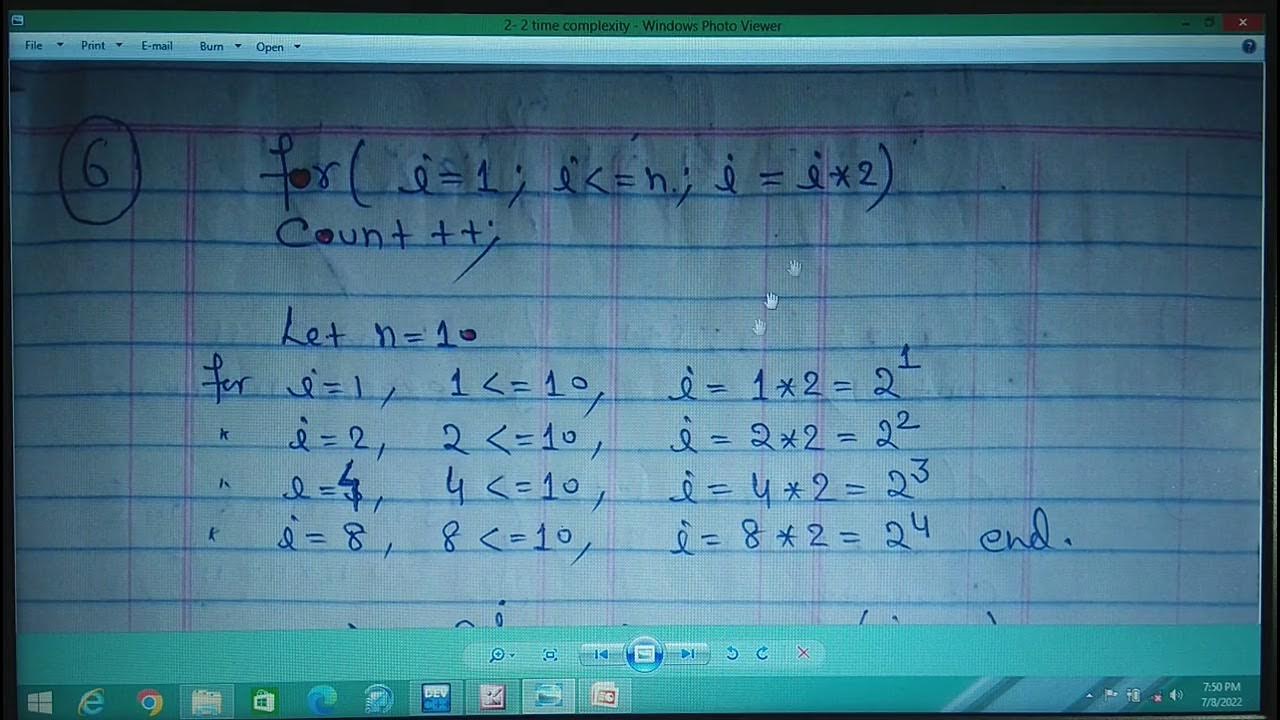 2- 2 time complexity - Windows Photo Viewer
File Print E-mail Burn Open
6 for( i=1; i<=n; i = i*2)
Count ++;
Let n=10
for i=1, 1 <=10, i = 1*2 = 2^1
" i=2, 2 <=10, i = 2*2 = 2^2
" i=4, 4 <=10, i = 4*2 = 2^3
" i=8, 8 <=10, i = 8*2 = 2^4 end.
DEV
7:50 PM
7/8/2022